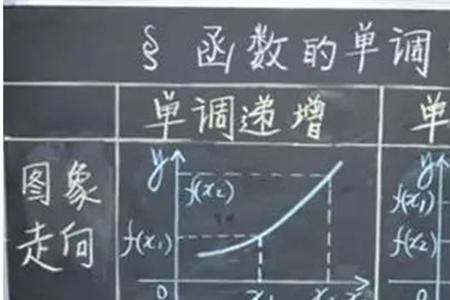 § 函数的单调
单调递增
单
图象
走向
y
f(x₂)
f(x₁)
0
x₁
x₂
x
f(x₁)
f(x₂)